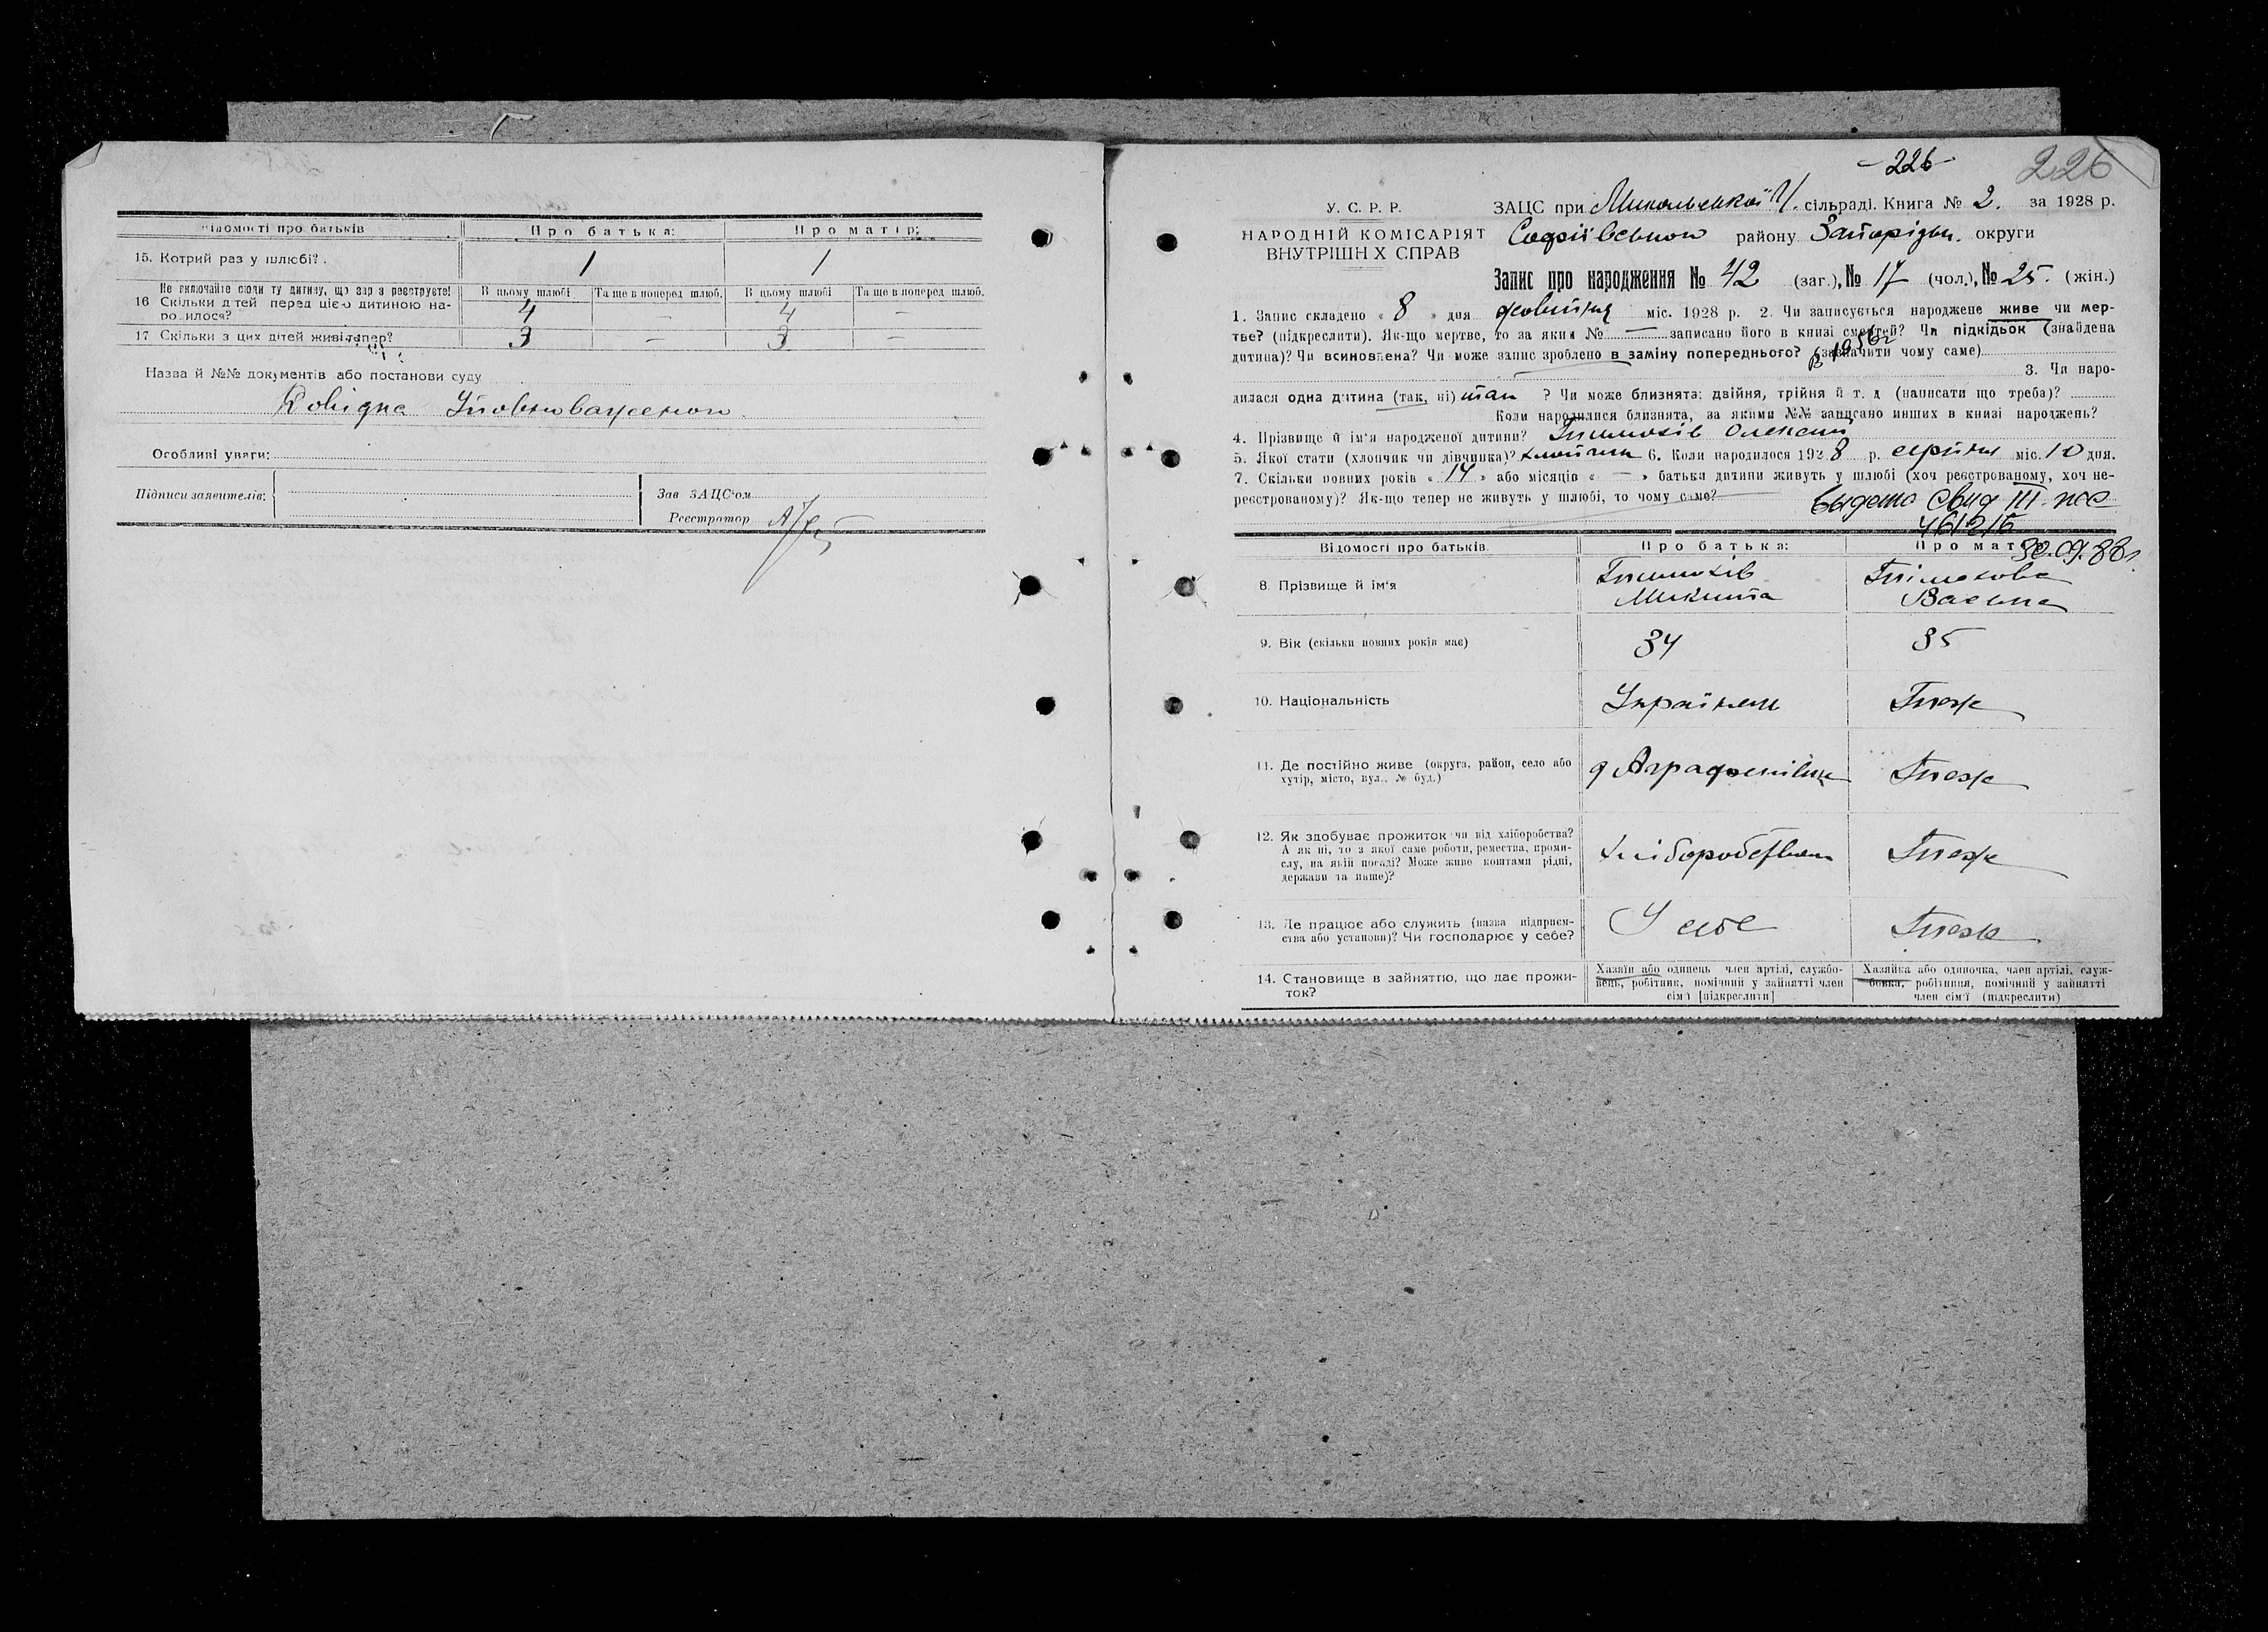 Відомості про батьків
Про батька:
Про матір:
15. Котрий раз у шлюбі?
1
1
Не включайте сюди ту дитину, що зараз реєструєте!
16 Скільки дітей перед цією дитиною народилося?
В цьому шлюбі
Та ще в поперед. шлюб.
В цьому шлюбі
Та ще в поперед. шлюб.
4
—
4
—
17 Скільки з цих дітей живі тепер?
3
—
3
—
Назва й №№ документів або постанови суду
Довідка Уповноваженого
Особливі уваги:
Підписи заявителів:
Зав ЗАЦС'ом
Реєстратор
-226-
226
У. С. Р. Р.
НАРОДНІЙ КОМІСАРІЯТ
ВНУТРІШНІХ СПРАВ
ЗАЦС при Микольській сільраді. Книга № 2. за 1928 р.
Софіївського району Запорізьк. округи
Запис про народження № 42 (заг.), № 17 (чол.), № 25. (жін.)
1. Запис складено « 8 » дня жовтня міс. 1928 р. 2. Чи записується народжене живе чи мер-
тве? (підкреслити). Як-що мертве, то за яким № — записано його в книзі смертей? Чи підкідьок (знайдена
дитина)? Чи всиновлена? Чи може запис зроблено в заміну попереднього? (зазначити чому саме)
в 1956г
3. Чи наро-
дилася одна дитина (так, ні) так ? Чи може близнята: двійня, трійня й т. д (написати що треба)?
Коли народилися близнята, за якими №№ записано инших в книзі народжень?
4. Прізвище й ім'я народженої дитини? Тимохів Олексій
5. Якої стати (хлопчик чи дівчинка)? хлопчик 6. Коли народилося 1928 р. серпня міс. 10 дня.
7. Скільки повних років « 14 » або місяців « — » батьки дитини живуть у шлюбі (хоч реєстрованому, хоч не-
реєстрованому)? Як-що тепер не живуть у шлюбі, то чому саме?
Выдано свид III
461216
30.09.88г.
Відомості про батьків
Про батька:
Про матір
8. Прізвище й ім'я
Тимохів
Микита
Тімохова
9. Вік (скільки повних років має)
34
35
10. Національність
Українець
Теж
11. Де постійно живе (округа, район, село або
хутір, місто, вул., № буд.)
д Аграфенівка
Теж
12. Як здобуває прожиток чи від хліборобства?
А як ні, то з якої саме роботи, ремества, проми-
слу, на якій посаді? Може живе коштами рідні,
держави та инше)?
хліборобством
Теж
13. Де працює або служить (назва підприєм-
ства або установи)? Чи господарює у себе?
У себе
Теж
14. Становище в зайняттю, що дає прожи-
ток?
Хазяїн або одинець член артілі, службо-
вець, робітник, помічний у зайнятті член
сім'ї [підкреслити]
Хазяйка або одиночка, член артілі, служ-
бовка, робітниця, помічний у зайнятті
член сім'ї (підкреслити)